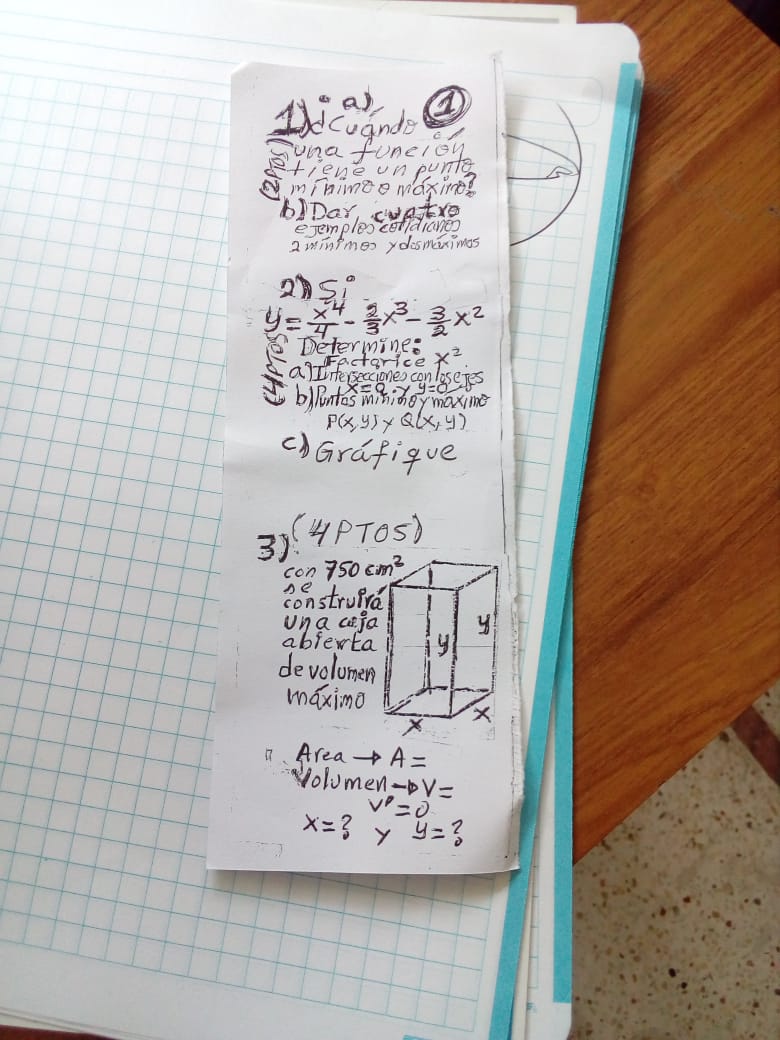 a) 1
1) ¿Cuándo
una función
tiene un punto
mínimo o máximo?
(2PTOS)
b) Dar cuatro
ejemplos cotidianos
2 mínimos y dos máximos
2) Si
y = x⁴/4 - 2/3 x³ - 3/2 x²
(4PTOS)
Determine:
Factorice x²
a) Intersecciones con los ejes
x=0 y y=0
b) Puntos mínimo y máximo
P(x,y) y Q(x,y)
c) Gráfique
3) (4 PTOS)
con 750 cm²
se
construirá
una caja
abierta
de volumen
máximo
y
y
x
x
Area → A=
Volumen → V=
V'=0
x=? y y=?